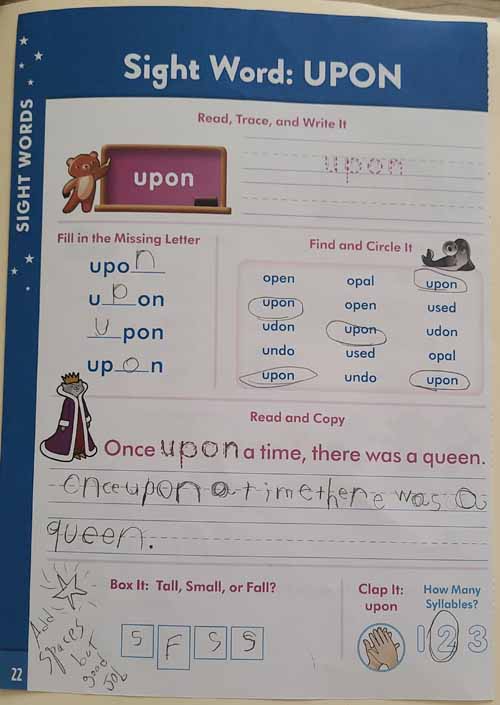 Sight Word: UPON
SIGHT WORDS
Read, Trace, and Write It
upon
upon
Fill in the Missing Letter
upon
upon
upon
upon
Find and Circle It
open opal upon
upon open used
udon upon udon
undo used opal
upon undo upon
Read and Copy
Once upon a time, there was a queen.
once upon a time there was a
queen.
Box It: Tall, Small, or Fall?
S F S S
Clap It:
upon
How Many
Syllables?
1 2 3
Add
spaces
but
good
Job
22